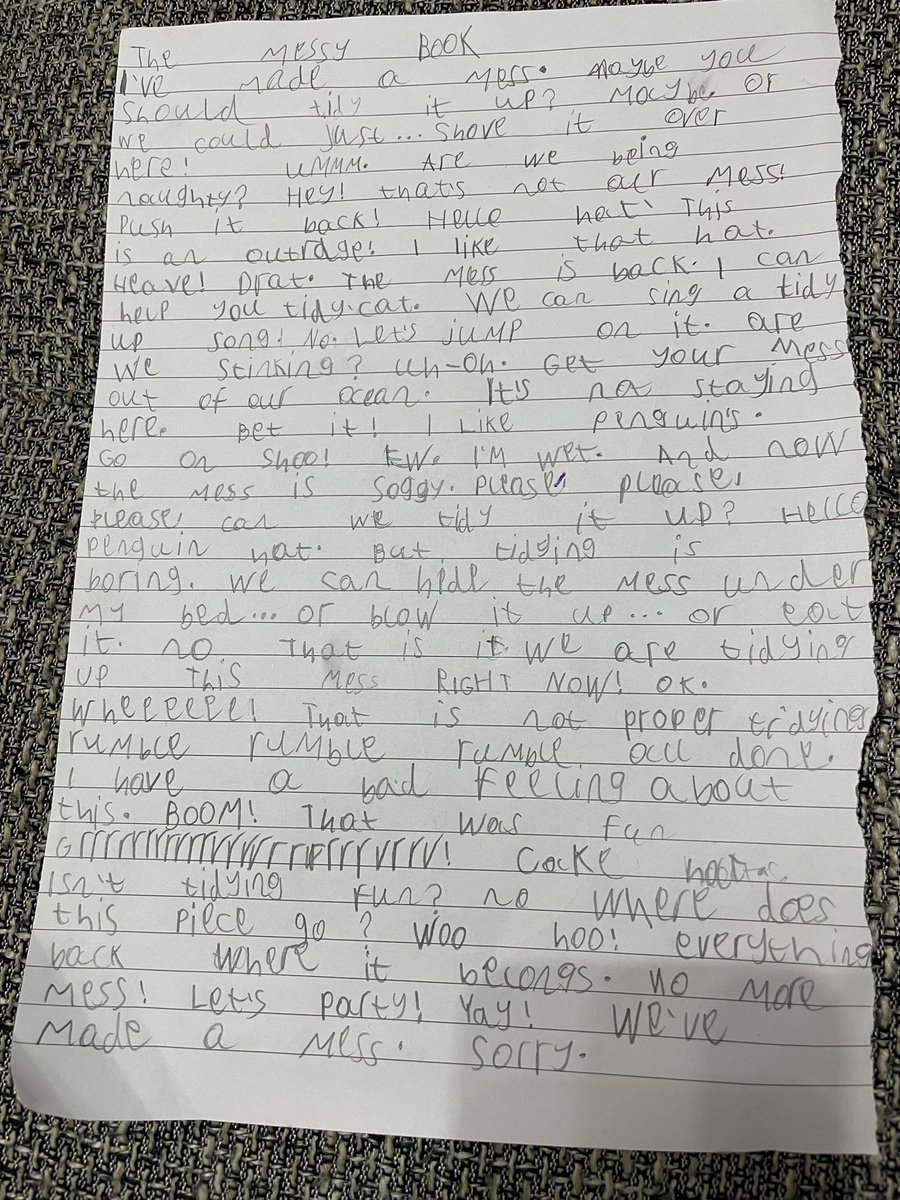 The MESSY BOOK
I've made a mess. maybe you
should tidy it up? Maybe. or
we could just... shove it over
here! UMMM. Are we being
naughty? Hey! that's not our mess!
Push it back! Hello hat! This
is an outrage! I like that hat.
Heave! Drat. The mess is back. I can
help you tidy.cat. We can sing a tidy
up song! No. Let's JUMP on it. are
we stinking? Uh-Oh. Get your mess
out of our ocean. It's not staying
here. Bet it! I Like penguin's.
Go on shoo! EW. I'M wet. And now
the mess is soggy. Please, please,
please, can we tidy it up? Hello
penguin hat. But tidying is
boring. We can hide the mess under
my bed... or blow it up... or eat
it. no That is it. we are tidying
up This mess RIGHT NOW! OK.
Wheeeeee! That is not proper tidying
rumble rumble rumble. all done.
I have a bad feeling about
this. BOOM! That was fun
Grrrrrrrrrrrrrrrrrrrrrr! Cake
Isn't tidying fun? no where does
this piece go? Woo hoo! everything
back where it belongs. no more
mess! Let's party! Yay! We've
made a mess. sorry.